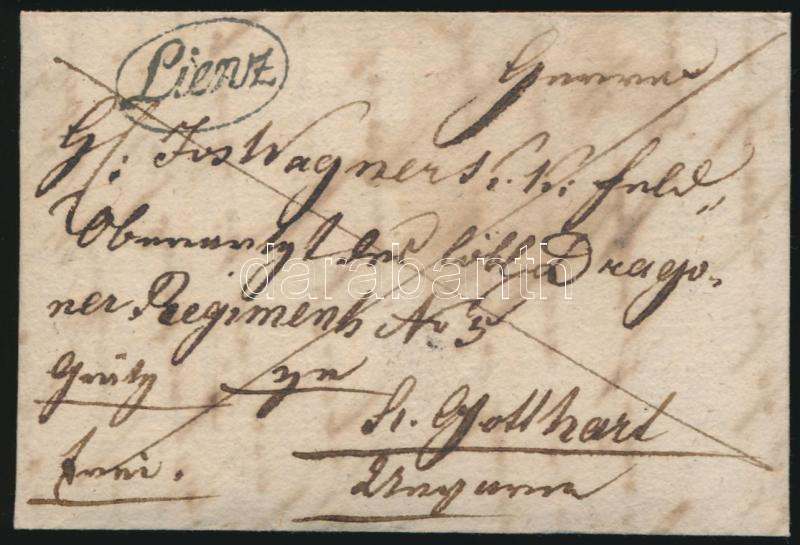 Lienz
Herrn
H: Jos Wagner k: k: Feld„
Oberarzt des löbl. Drago„
ner Regiments No 5
Grätz zu
St. Gotthart
frei.
Ungarn
darabanth